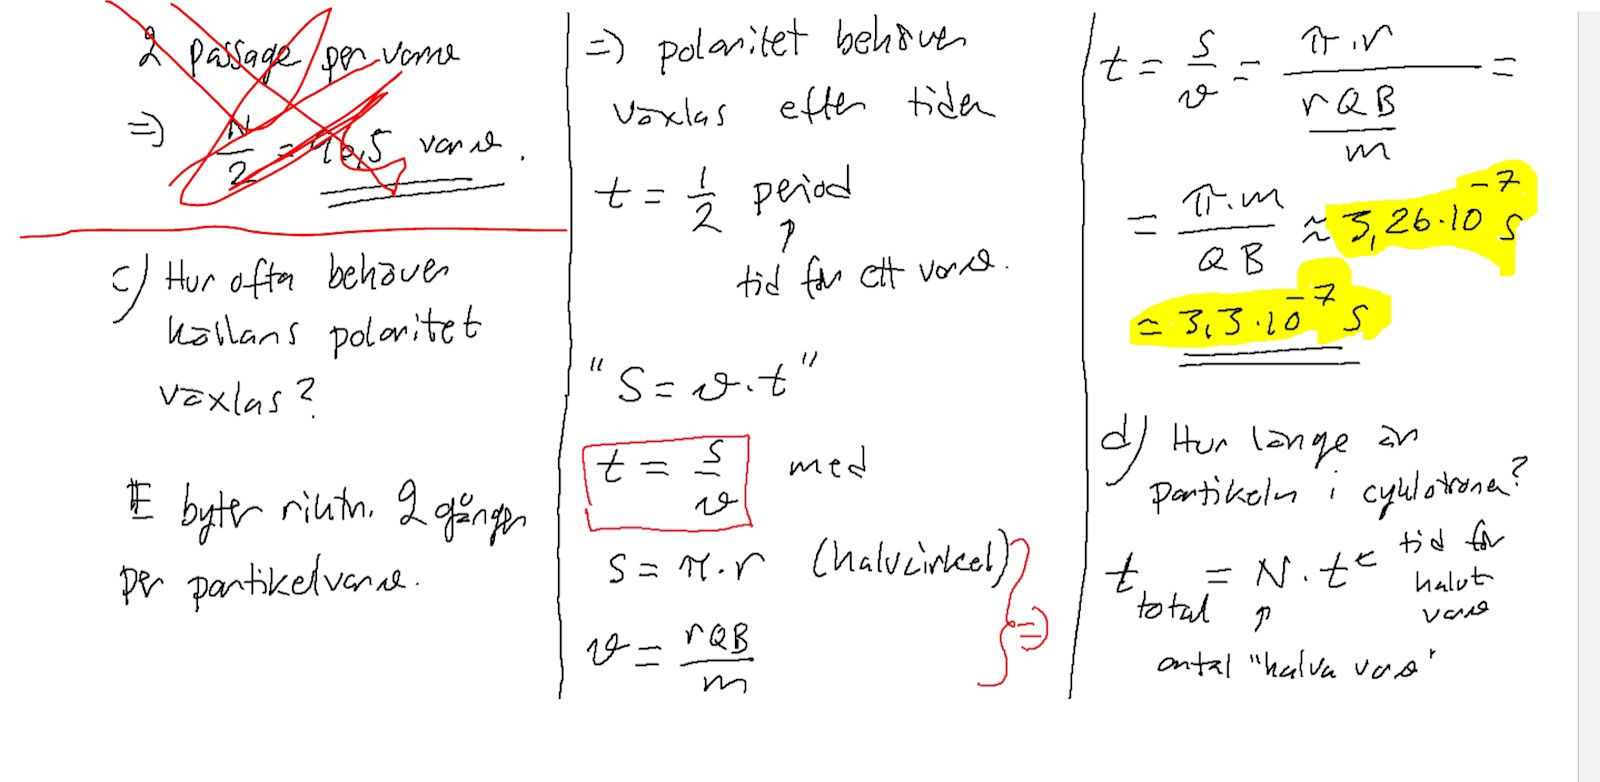 2 passage per varv
=> N/2 = 90,5 varv.
c) Hur ofta behöver
källans polaritet
växlas?
E byter riktn. 2 gånger
per partikelvarv.
=> polaritet behöver
växlas efter tiden
t = 1/2 period
↑
tid för ett varv.
"S = v·t"
t = s/v med
s = π·r (halvcirkel)
v = rQB/m
=>
t = s/v = π·r / (rQB/m) =
= π·m/QB ≈ 3,26·10^-7 s
= 3,3·10^-7 s
d) Hur länge är
partikeln i cyklotronen?
t total = N·t ← tid för
halvt
varv
↑
antal "halva varv"